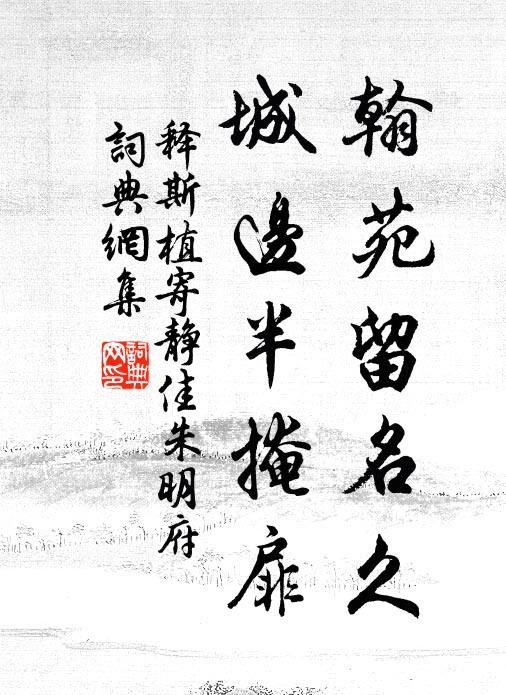 翰苑留名久
城邊半掩扉
释斯植寄静佳朱明府
詞典網集
詞典
网印